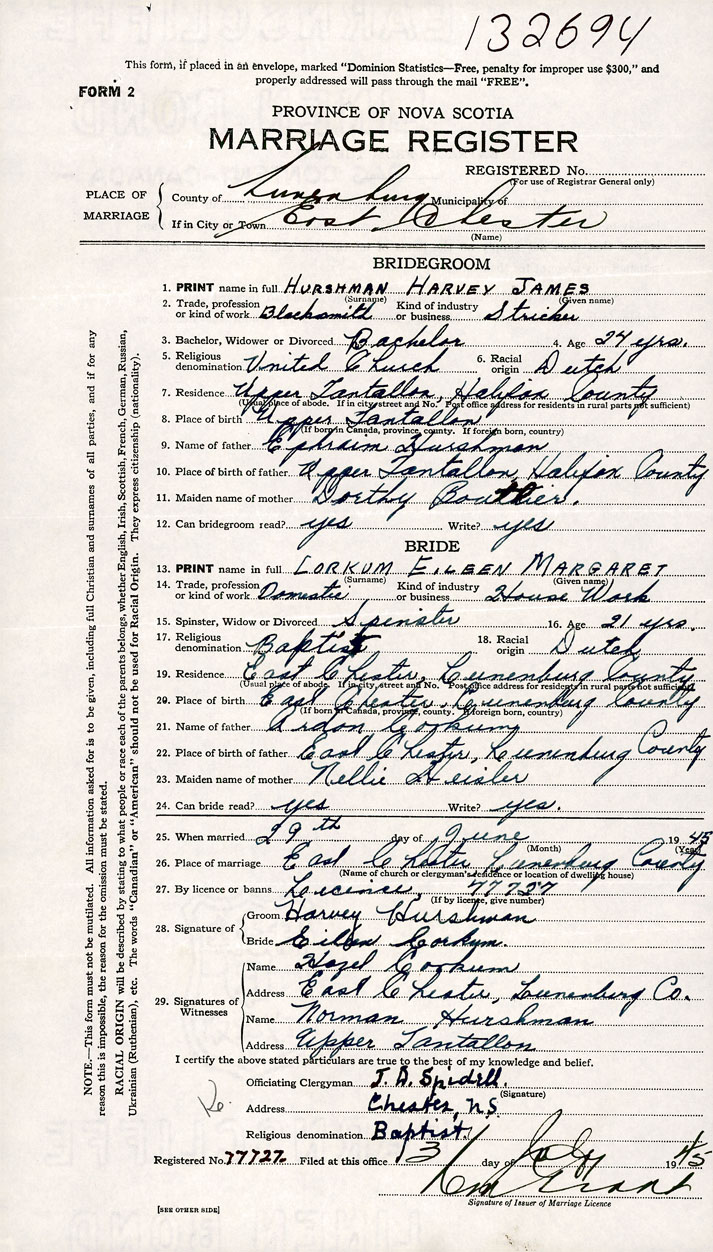 132694
This form, if placed in an envelope, marked "Dominion Statistics—Free, penalty for improper use $300," and
properly addressed will pass through the mail "FREE".
FORM 2
PROVINCE OF NOVA SCOTIA
MARRIAGE REGISTER
REGISTERED No.
(For use of Registrar General only)
PLACE OF MARRIAGE
County of Lunenburg Municipality of
If in City or Town East Chester
(Name)
BRIDEGROOM
1. PRINT name in full HURSHMAN HARVEY JAMES
(Surname) (Given name)
2. Trade, profession or kind of work Blacksmith Kind of industry or business Stricker
3. Bachelor, Widower or Divorced Bachelor 4. Age 24 yrs.
5. Religious denomination United Church 6. Racial origin Dutch
7. Residence Upper Tantallon, Halifax County
(Usual place of abode. If in city, street and No. Post office address for residents in rural parts not sufficient)
8. Place of birth Upper Tantallon
(If born in Canada, province, county. If foreign born, country)
9. Name of father Ephraim Hurshman
10. Place of birth of father Upper Tantallon, Halifax County
11. Maiden name of mother Dorthy Boutlier.
12. Can bridegroom read? yes Write? yes
BRIDE
13. PRINT name in full CORKUM EILEEN MARGARET
(Surname) (Given name)
14. Trade, profession or kind of work Domestic Kind of industry or business House Work
15. Spinster, Widow or Divorced Spinster 16. Age 21 yrs.
17. Religious denomination Baptist 18. Racial origin Dutch
19. Residence East Chester, Lunenburg County
(Usual place of abode. If in city, street and No. Post office address for residents in rural parts not sufficient)
20. Place of birth East Chester, Lunenburg County
(If born in Canada, province, county. If foreign born, country)
21. Name of father Ardon Corkum
22. Place of birth of father East Chester, Lunenburg County
23. Maiden name of mother Nellie Heisler
24. Can bride read? yes Write? yes.
25. When married 29th day of June 1945
(Month) (Year)
26. Place of marriage East Chester Lunenburg County
(Name of church or clergyman's residence or location of dwelling house)
27. By licence or banns Licence, 77727
(If by license, give number)
28. Signature of
Groom Harvey Hurshman
Bride Eileen Corkum.
29. Signatures of Witnesses
Name Hazel Corkum
Address East Chester, Lunenburg Co.
Name Norman Hurshman
Address Upper Tantallon
I certify the above stated particulars are true to the best of my knowledge and belief.
Officiating Clergyman J. D. Spidell.
(Signature)
Address Chester, NS
Religious denomination Baptist.
Registered No. 77727 Filed at this office 13 day of July 1945
Grant
Signature of Issuer of Marriage Licence
[SEE OTHER SIDE]
NOTE.—This form must not be mutilated. All information asked for is to be given, including full Christian and surnames of all parties, and if for any
reason this is impossible, the reason for the omission must be stated.
RACIAL ORIGIN will be described by stating to what people or race each of the parents belongs, whether English, Irish, Scottish, French, German, Russian,
Ukrainian (Ruthenian), etc. The words "Canadian" or "American" should not be used for Racial Origin. They express citizenship (nationality).